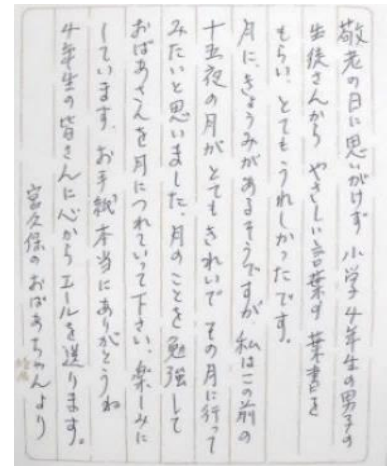 敬老の日に思いがけず 小学4年生の男子の
生徒さんから やさしい言葉の 葉書を
もらい、とてもうれしかったです。
月に、きょうみがあるそうですが、私はこの前の
十五夜の月がとてもきれいで その月に行って
みたいと思いました。月のことを勉強して
おばあさんを月につれていって下さい。楽しみに
しています。お手紙本当にありがとうね
4年生の皆さんに心からエールを送ります。
宮久保のおばあちゃんより